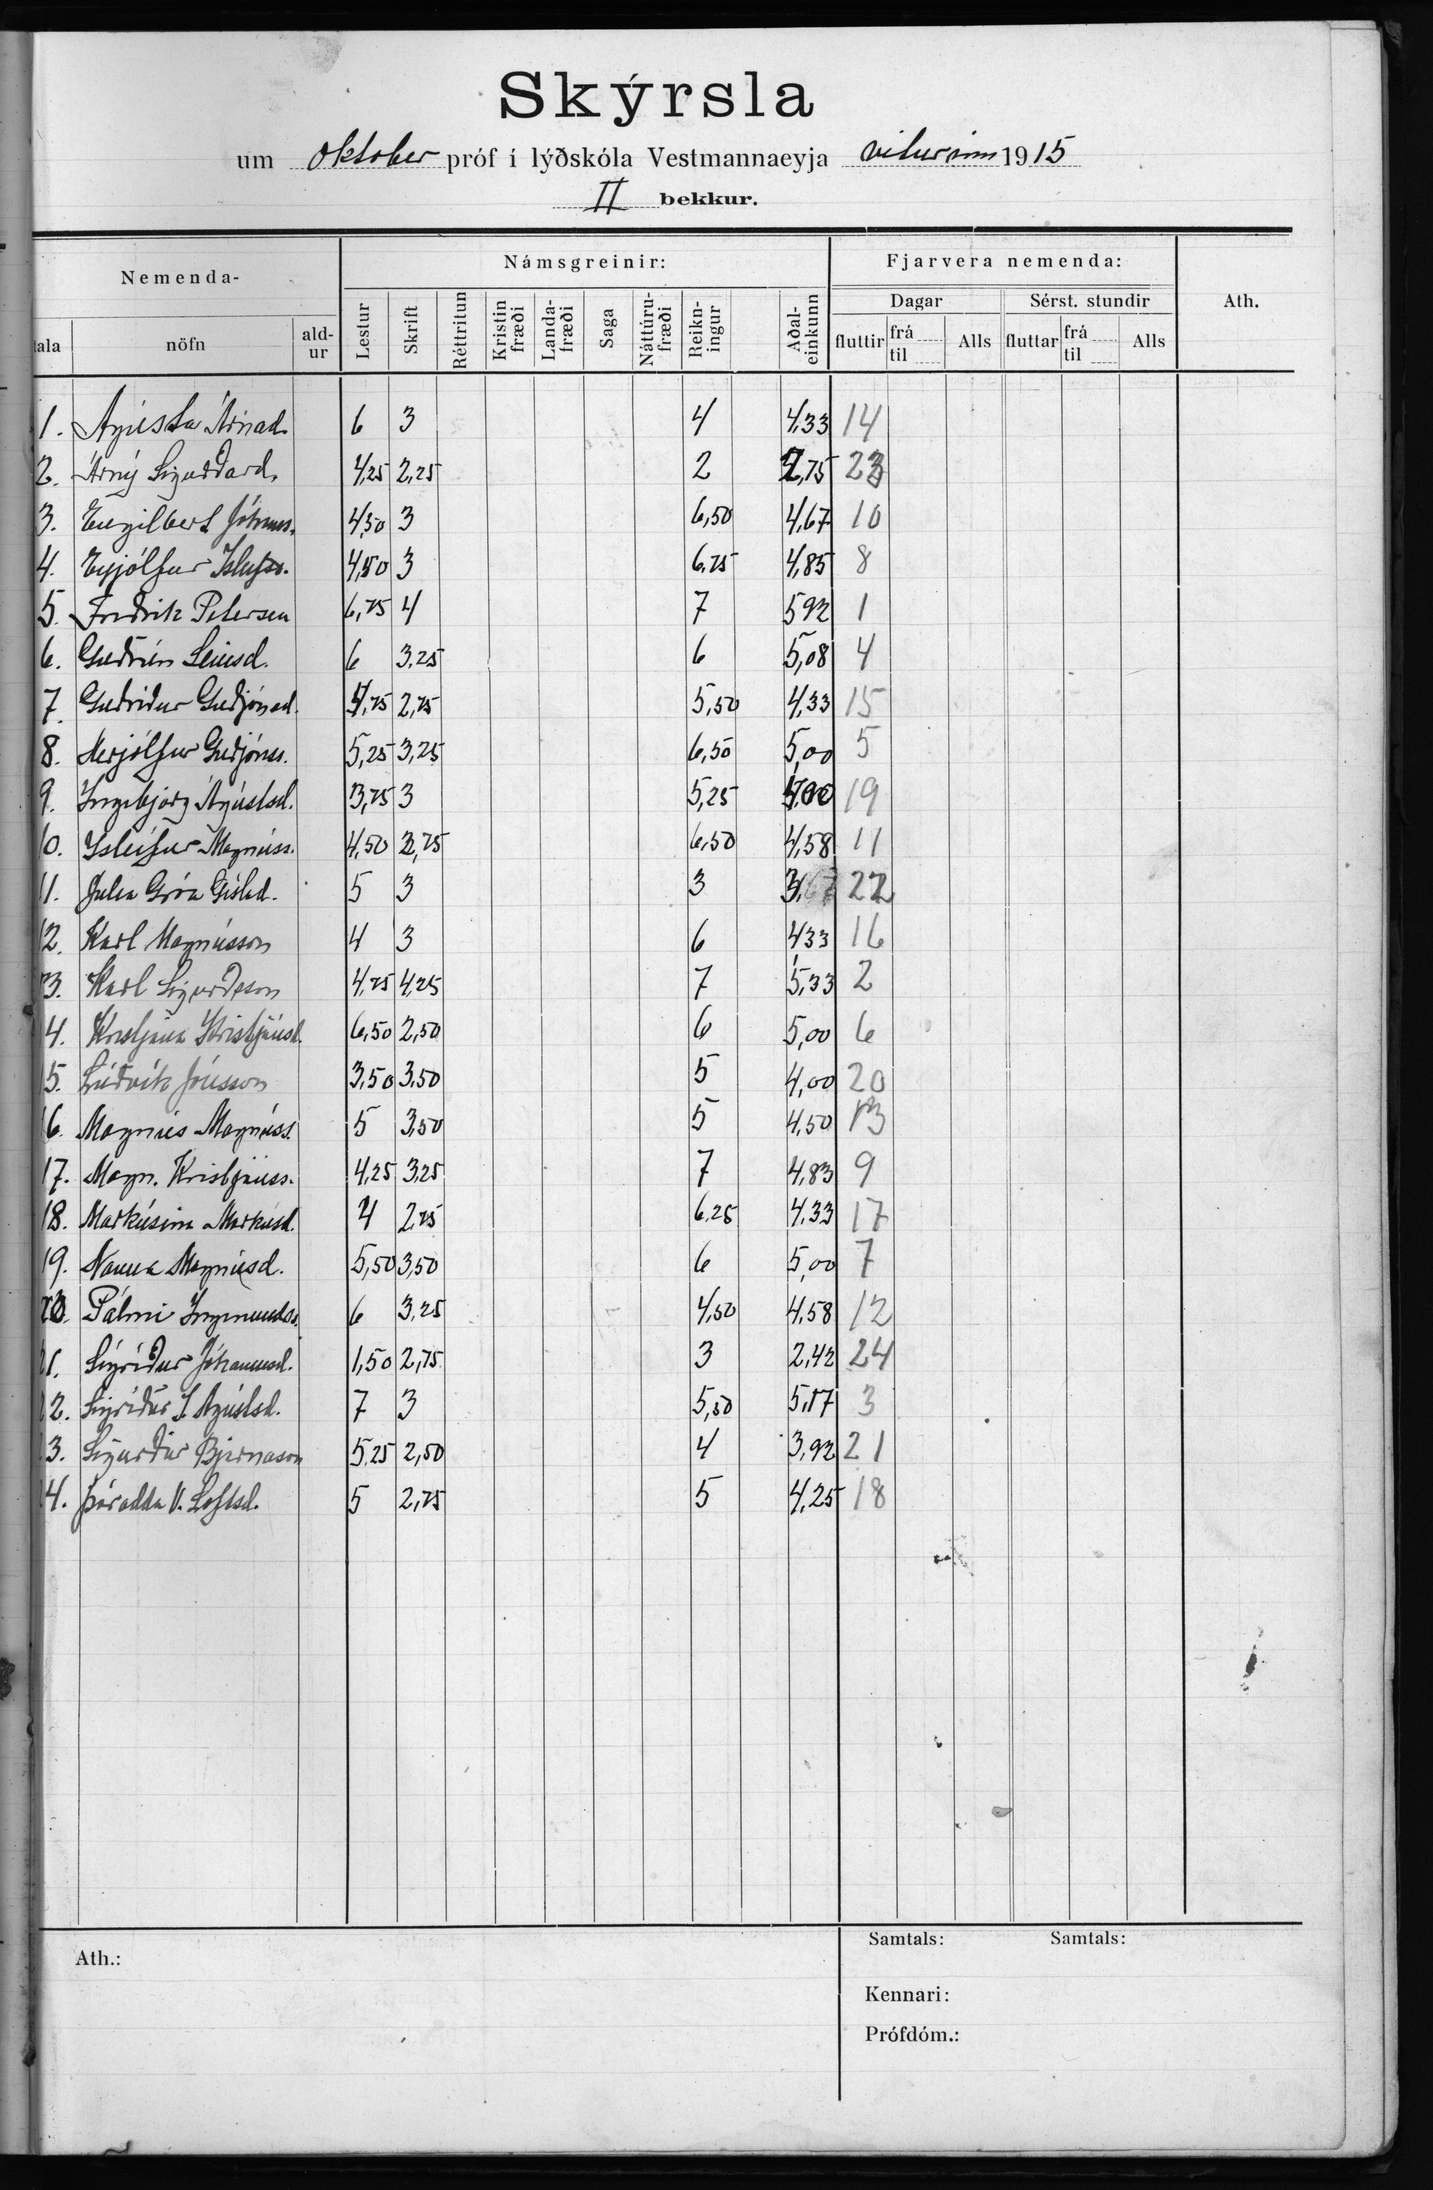 Skýrsla
um oktober próf í lýðskóla Vestmannaeyja veturinn 1915
II bekkur.
Nemenda- Námsgreinir: Fjarvera nemenda: Ath.
Dagar Sérst. stundir
tala nöfn ald-ur Lestur Skrift Réttritun Kristin fræði Landa-fræði Saga Náttúru-fræði Reikn-ingur Aðal-einkunn fluttir frá til Alls fluttar frá til Alls
1. Ágústa Árnad. 6 3 4 4,33 14
2. Árný Sigurðard. 4,25 2,25 2 2,75 23
3. Engilbert Jóhanns. 4,50 3 6,50 4,67 10
4. Eyjólfur Ísleifss. 4,50 3 6,75 4,85 8
5. Friðrik Petersen 6,75 4 7 5 92 1
6. Guðrún Leiusd. 6 3,25 6 5,08 4
7. Guðríður Guðjónsd. 4,75 2,75 5,50 4,33 15
8. Herjólfur Guðjónss. 5,25 3,25 6,50 5,00 5
9. Ingibjörg Ágústsd. 3,75 3 5,25 4,00 19
10. Ísleifur Magnúss. 4,50 2,75 6,50 4,58 11
11. Julia Gróa Gíslad. 5 3 3 3,67 22
12. Karl Magnússon 4 3 6 4 33 16
13. Karl Sigurðsson 4,75 4,25 7 5,33 2
14. Kristjana Kristjánsd. 6,50 2,50 6 5,00 6
15. Lúðvík Jónsson 3,50 3,50 5 4,00 20
16. Magnús Magnúss. 5 3,50 5 4,50 13
17. Magn. Kristjánss. 4,25 3,25 7 4,83 9
18. Markúsína Markúsd. 4 2,75 6,25 4,33 17
19. Nanna Magnúsd. 5,50 3,50 6 5,00 7
20. Pálmi Ingimundss. 6 3,25 4,50 4,58 12
21. Sigríður Jóhannsd. 1,50 2,75 3 2,42 24
22. Sigríður I. Ágústsd. 7 3 5,50 5,17 3
23. Sigurður Bjarnason 5,25 2,50 4 3,92 21
24. Þórodda V. Loftsd. 5 2,75 5 4,25 18
Ath.: Samtals: Samtals:
Kennari:
Prófdóm.: